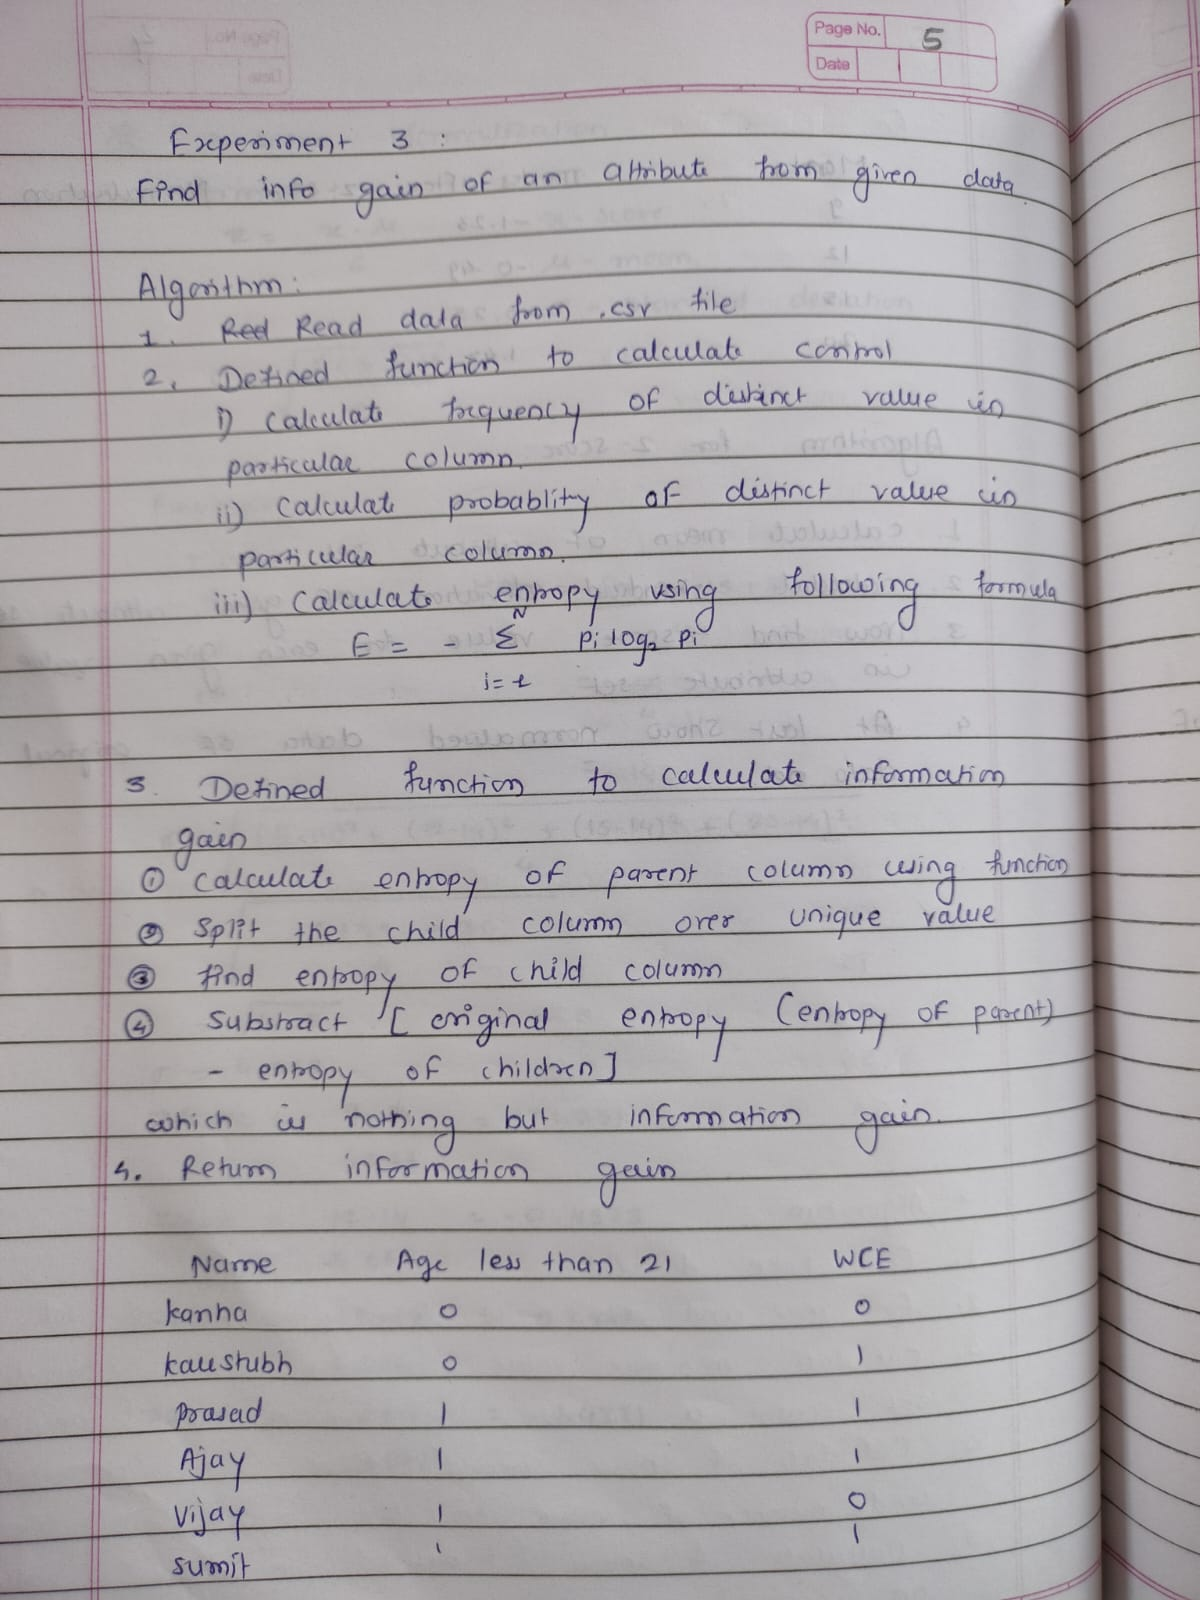 Page No. 5
Date
Experiment 3 :
Find info gain of an attribute from given data.
Algorithm :
1. Red Read data from .csv file
2. Defined function to calculate control
i) Calculate frequency of distinct value in
particular column.
ii) Calculate probablity of distinct value in
particular column.
iii) Calculate entropy using following formula
E = - N Σ i=1 Pi log2 Pi
3. Defined function to calculate information
gain
① Calculate entropy of parent column using function
② Split the child column over unique value
③ find entropy of child column
④ Substract [ original entropy (entropy of parent)
- entropy of children ]
which is nothing but information gain.
4. Return information gain
Name Age less than 21 WCE
kanha 0 0
kaustubh 0 1
prasad 1 1
Ajay 1 1
Vijay 1 0
sumit 1 1